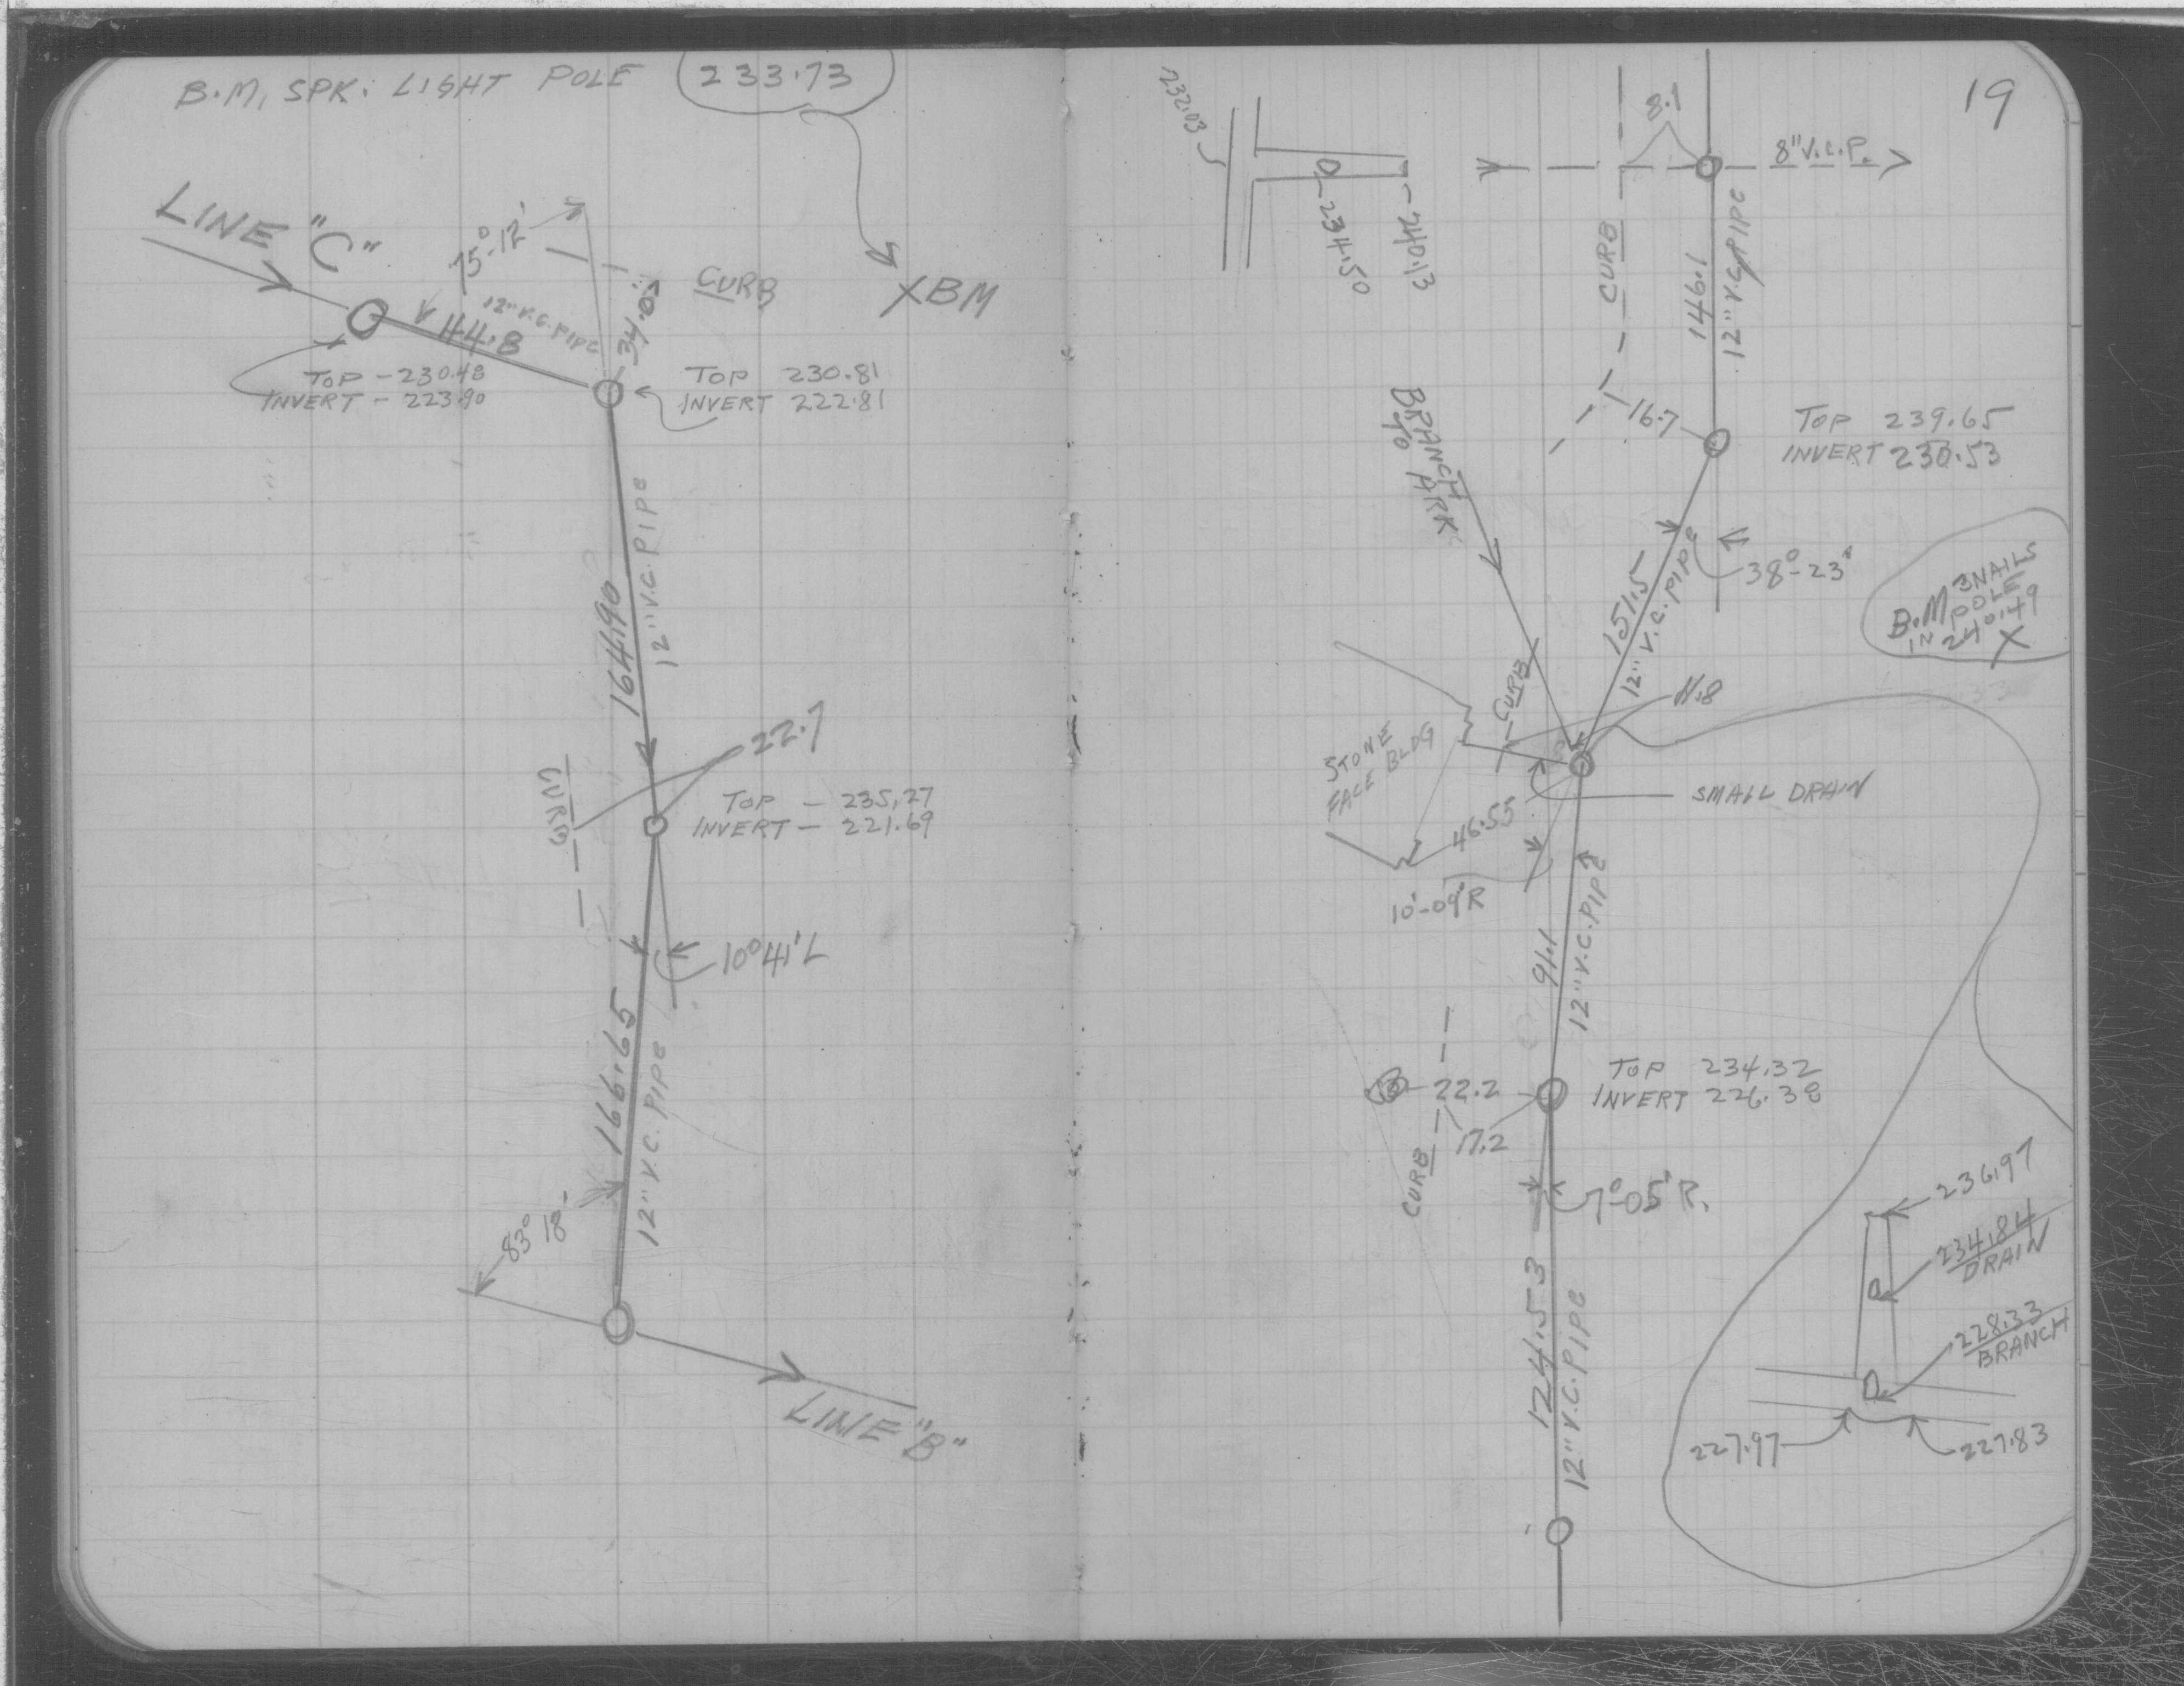 B.M. SPK. LIGHT POLE 233.73
LINE "C"
75°-12'
12" V.C. PIPE
44.8
34.0
CURB
XBM
TOP - 230.48
INVERT - 223.90
TOP 230.81
INVERT 222.81
164.90
12" V.C. PIPE
22.7
CURB
TOP - 235.27
INVERT - 221.69
10°41'L
166.65
12" V.C. PIPE
83° 18'
LINE "B"
19
232.03
234.50
240.13
8.1
8" V.C.P.
CURB
146.1
12" V.C. PIPE
16.7
TOP 239.65
INVERT 230.53
BRANCH
TO
151.5
12" V.C. PIPE
38°-23'
B.M. 3 NAILS
IN POLE
240.49
X
CURB
11.8
STONE
FACE BLDG
SMALL DRAIN
46.55
10°-09'R
91.1
12" V.C. PIPE
22.2
17.2
CURB
TOP 234.32
INVERT 226.38
7°-05' R.
124.53
12" V.C. PIPE
236.97
234.84
DRAIN
228.33
BRANCH
227.97
227.83